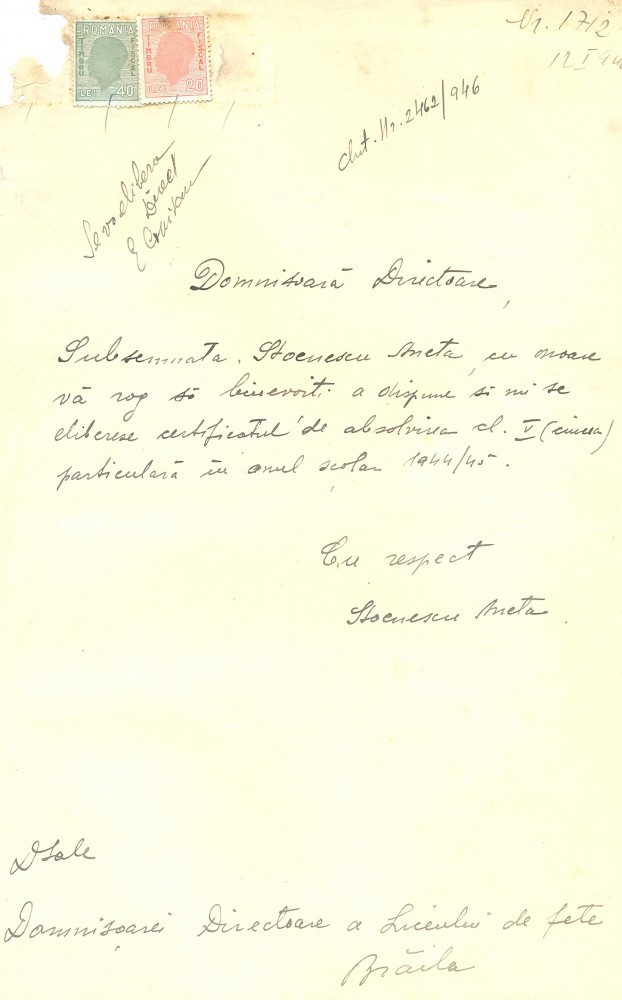 ROMANIA ROMANIA
TIMBRU FISCAL TIMBRU FISCAL
LEI 40 LEI 20
Nr. 1712
12 I 94
chit. Nr. 2462/946
Se va elibera
Direct
Domnisoară Directoare,
Subsemnata Stoenescu Aneta, cu onoare
vă rog să binevoiti a dispune si mi se
eliberese certificatul de absolvirea cl. V (cincea)
particulară în anul școlar 1944/45.
Cu respect
Stoenescu Aneta
DSale
Domnișoarei Directoare a Liceului de fete
Brăila